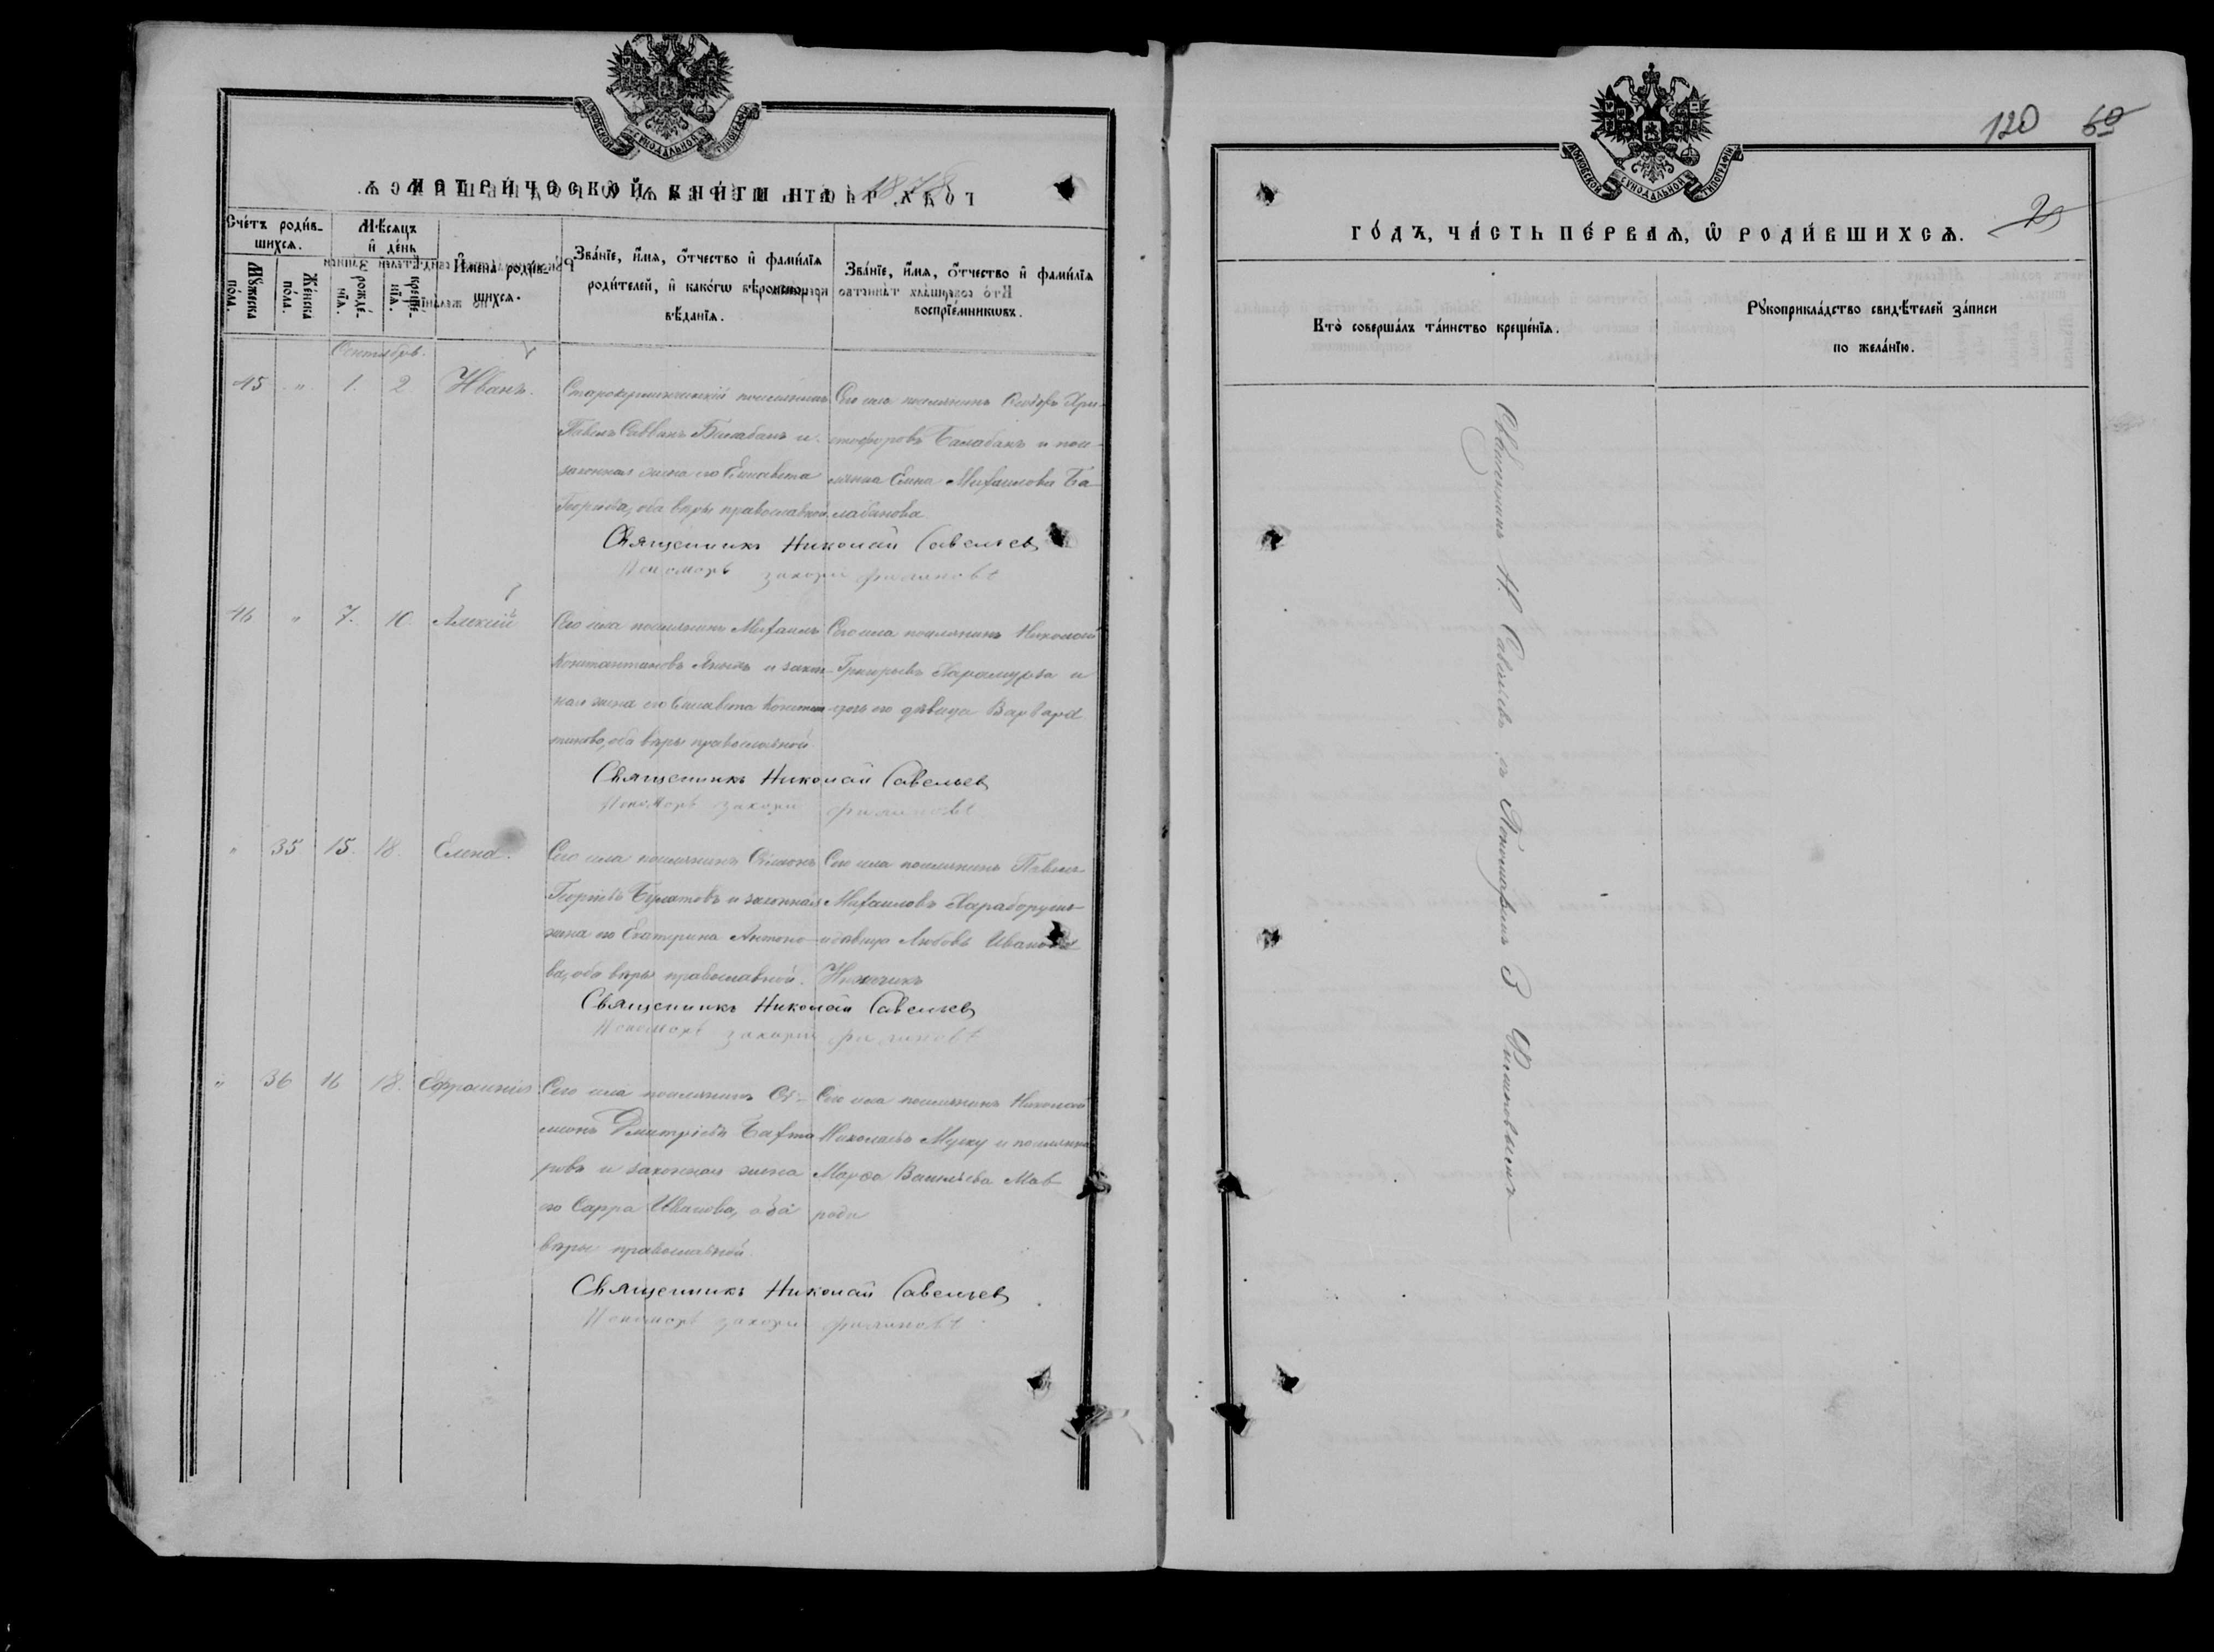 Московской Сѵнодальной Типографіи
Метри́ческой кни́ги на 1878
Сче́тъ роди́в-
шихсѧ.
Мꙋ́жеска
по́ла.
Же́нска
по́ла.
Мѣ́сѧцъ
и҆ де́нь
рожде́-
нїѧ.
креще́-
нїѧ.
И҆мена̀ роди́в-
шихсѧ.
Зва́нїе, и҆́мѧ, ѻ҆́тчество и҆ фами́лїѧ
роди́телей, и҆ како́гѡ вѣроисповѣ́данїѧ.
Зва́нїе, и҆́мѧ, ѻ҆́тчество и҆ фами́лїѧ
воспрїе́мникѡвъ.
Сентябрь.
45 " 1. 2 Иванъ.
поселянинъ
Павелъ Саввинъ Балабанъ и
законная жена его Елисавета
Георгіева, оба вѣры православной.
Сего села поселянинъ Хри-
стофоровъ Балабанъ и посе-
лянка Елена Михаилова Ба-
лабанова
Священникъ Николай Савельев
Пономарь захарій филиповъ
46 " 7. 10. Алексій
Сего села поселянинъ Михаилъ
Константиновъ и закон-
ная жена его Елисавета Констан-
тинова, оба вѣры православной
Сего села поселянинъ Николай
Григорьевъ Харамурза и
дочь его дѣвица Варвара
Священникъ Николай Савельев
Пономарь захарій филиповъ
" 35 15. 18. Елена.
Сего села поселянинъ Симеонъ
Георгіевъ и законная
жена его Екатерина Антоно-
ва, оба вѣры православной.
Сего села поселянинъ Павелъ
Михаиловъ
и дѣвица Любовь Иванова
Священникъ Николай Савельев
Пономарь захарій филиповъ
" 36 16 18. Ефросинія
Сего села поселянинъ Си-
меонъ Дмитріевъ Бахта
ровъ и законная жена
его Сарра Иванова, оба
вѣры православной.
Сего села поселянинъ Николай
Николаевъ и поселянка
Марѳа Васильева Мав
роди
Священникъ Николай Савельев
Пономарь захарій филиповъ
120 60
29
Московской Сѵнодальной Типографіи
го́дъ, ча́сть пе́рваѧ, ѡ҆ роди́вшихсѧ.
Кто̀ соверша́лъ та́инство креще́нїѧ.
Рꙋкоприкла́дство свидѣ́телей за́писи
по жела́нїю.
Священникъ Н. Савельевъ съ Пономаремъ З Филиповымъ